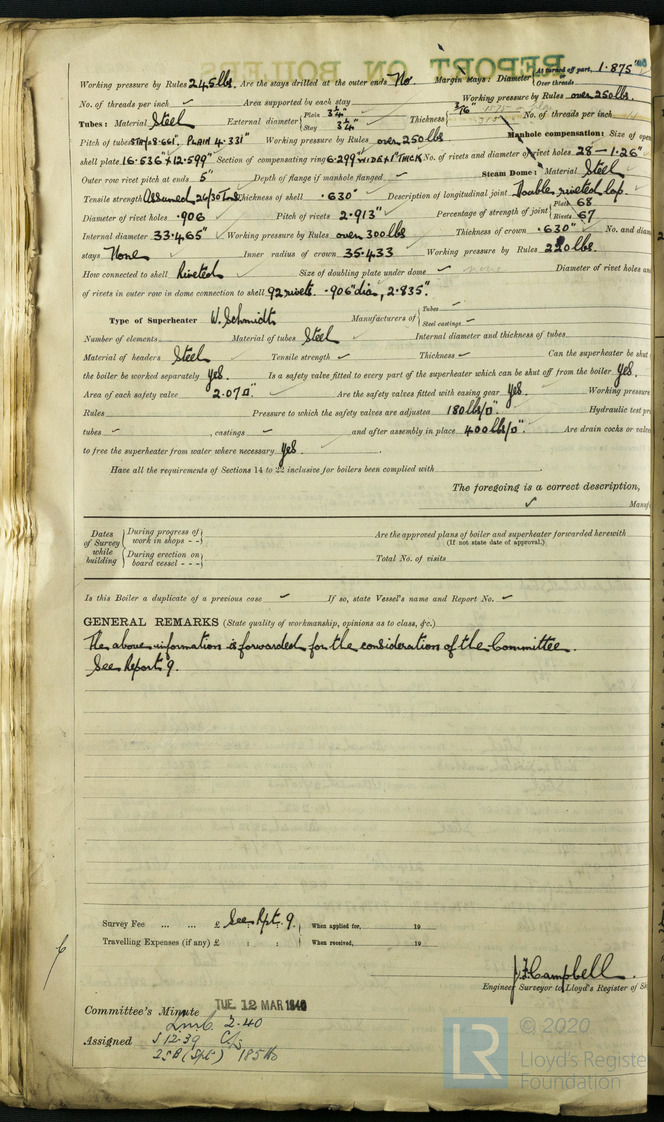 Working pressure by Rules 245 lbs. Are the stays drilled at the outer ends No. Margin stays: Diameter { At turned off part, 1.875" or Over threads
No. of threads per inch ✓ Area supported by each stay Working pressure by Rules over 250 lbs.
Tubes: Material Steel External diameter { Plain 3¼" Stay 3¼" Thickness { 3/16" No. of threads per inch
Pitch of tubes STAY 8.661", PLAIN 4.331" Working pressure by Rules over 250 lbs Manhole compensation: Size of open
shell plate 16.536" x 12.599" Section of compensating ring 6.299" WIDE x 1" THICK No. of rivets and diameter of rivet holes 28 – 1.26"
Outer row rivet pitch at ends 5" Depth of flange if manhole flanged ✓ Steam Dome: Material Steel
Tensile strength Assumed 26/30 Tons Thickness of shell .630" Description of longitudinal joint Double riveted lap.
Diameter of rivet holes .906 Pitch of rivets 2.913" Percentage of strength of joint { Plate 68 Rivets 67
Internal diameter 33.465" Working pressure by Rules over 300 lbs Thickness of crown .630" No. and diam
stays None Inner radius of crown 35.433 Working pressure by Rules 220 lbs.
How connected to shell Riveted Size of doubling plate under dome ✓ none Diameter of rivet holes and
of rivets in outer row in dome connection to shell 92 rivets. .906" dia, 2.835".
Type of Superheater W. Schmidt Manufacturers of { Tubes ✓ Steel castings ✓
Number of elements Material of tubes Steel Internal diameter and thickness of tubes
Material of headers Steel Tensile strength ✓ Thickness ✓ Can the superheater be shut
the boiler be worked separately Yes. Is a safety valve fitted to every part of the superheater which can be shut off from the boiler Yes.
Area of each safety valve 2.07 □". Are the safety valves fitted with easing gear Yes. Working pressure
Rules Pressure to which the safety valves are adjusted 180 lbs/□". Hydraulic test pr
tubes ✓, castings ✓ and after assembly in place 400 lbs/□". Are drain cocks or valve
to free the superheater from water where necessary Yes.
Have all the requirements of Sections 14 to 22 inclusive for boilers been complied with
The foregoing is a correct description,
✓ Manuf
Dates of Survey while building { During progress of work in shops - - } Are the approved plans of boiler and superheater forwarded herewith
(If not state date of approval.)
{ During erection on board vessel - - - } Total No. of visits
Is this Boiler a duplicate of a previous case ✓ If so, state Vessel's name and Report No. ✓
GENERAL REMARKS (State quality of workmanship, opinions as to class, &c.)
The above information is forwarded for the consideration of the Committee.
See Report 9.
Survey Fee ... ... £ See Rpt. 9. When applied for, 19
Travelling Expenses (if any) £ : : When received, 19
J. F. Campbell.
Engineer Surveyor to Lloyd's Register of Sh
Committee's Minute TUE. 12 MAR 1940
LMC 2.40
Assigned S 12.39
2SB (Spt) 185 lb
LR © 2020
Lloyd's Register
Foundation